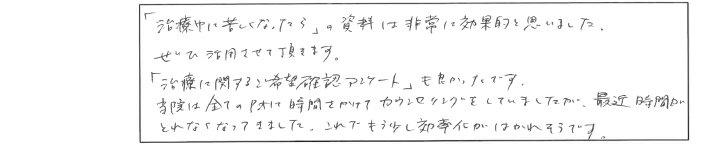 「治療中に苦しくなったら」の資料は非常に効果的と思いました。
ぜひ活用させて頂きます。
「治療に関するご希望確認アンケート」も良かったです。
当院は全てのPtに時間をかけてカウンセリングをしていましたが、最近時間が
とれなくなってきました。これでもう少し効率化がはかれそうです。